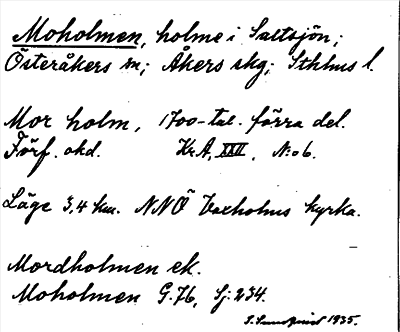 Moholmen, holme i Saltsjön;
Österåkers sn; Åkers skg; Sthlms l.
Mor holm, 1700-tal. förra del.
Förf. okd. KrA, XXII, N:o 6.
Läge 3,4 km. NNÖ Vaxholms kyrka.
Mordholmen ek.
Moholmen G.76, Sj. 234.
1935.